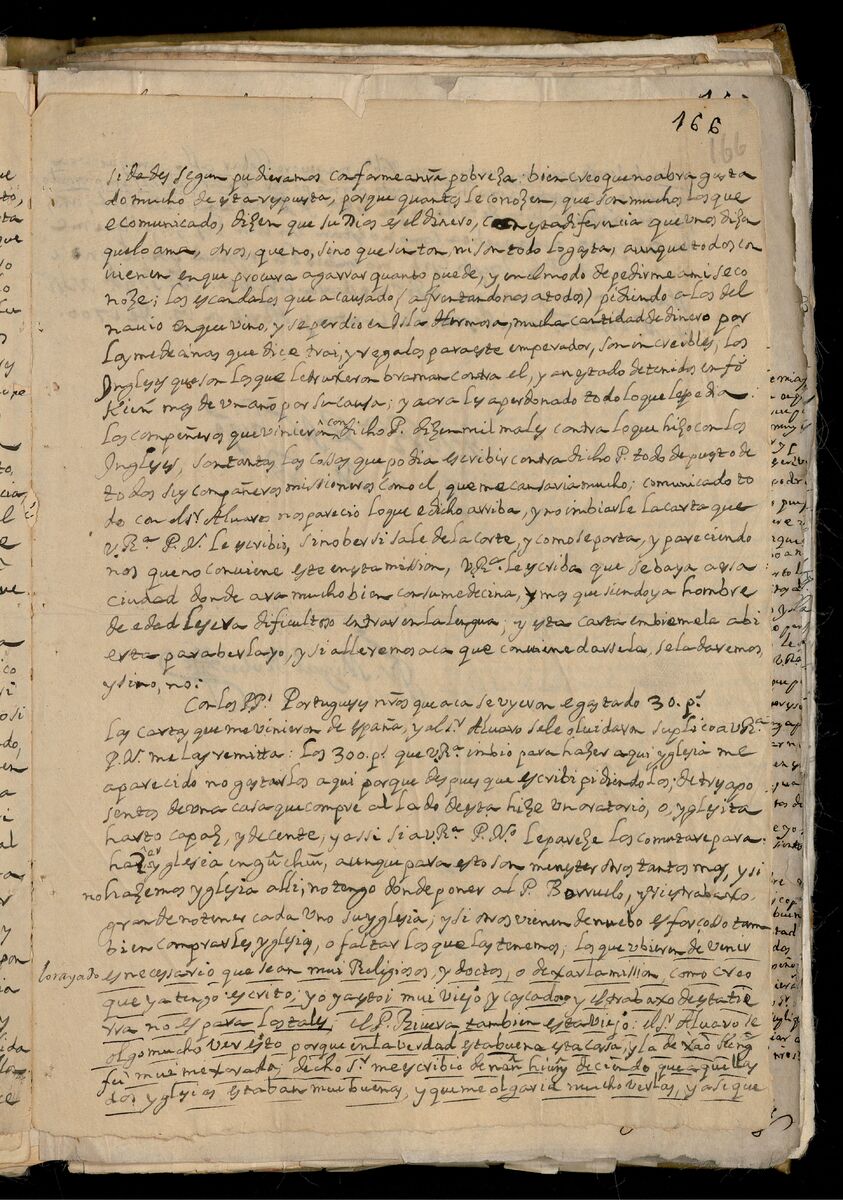 166
166
sidades segun pudieramos conforme a nrã pobreza: bien creo que no abra gusta
do mucho de esta respuesta, porque quantos le conozen, que son muchos los que
e comunicado, dizen que su Dios es el dinero, con esta diferencia que unos dizen
que lo ama, otros, que no, sino que sin ton, ni son todo lo gasta, aunque todos con
vienen en que procura agarrar quanto puede, y en el modo de pedirme a mi se co
noze; los escandalos que a causado (afrentandonos a todos) pidiendo a los del
navio en que vino, y se perdio en Isla Hermosa, mucha cantidad de dinero por
las medecinas que dice trai, y regalos para este emperador, son increibles, los
Ingleses que son los que le truxeron braman contra el, y an estado detenidos en fŏ
Kien mas de un año por su causa; y aora les a perdonado todo lo que les pedia
los compeñeros que vinieron con dicho P. dizen mil males contra lo que hizo con los
Ingleses, son tantas las cosas que podia escribir contra dicho P. todo depuesto de
todos sus compañeros missioneros como el, que me cansaria mucho; comunicado to
do con el Sr Alvaro nos pareciò lo que e dicho arriba, y no imbiarle la carta que
V.Ra. P.N. le escribio, sino ber si sale de la corte, y como se porta, y pareciendo
nos que no conviene este en esta mission, V.Ra. le escriba que se baya a essa
ciudad donde ara mucho bien con su medecina, y mas que siendo ya hombre
de edad le sera dificultoso entrar en la lengua; y esta carta embiemela abi
erta para berla yo, y si alleremos aca que conviene darsela, se la daremos
y sino, no:
Con los PPs Portugueses nrõs que aca se uyeron e gastado 30. ps.
las cartas que me vinieron de españa, y al Sr Alvaro se le oluidaron suplico a V.Ra.
P.N. me las remitta: los 300. ps que V.Ra. imbio para hazer aqui yglesia me
a parecido no gastarlos aqui porque despues que escribi pidiendolos; de tres apo
sentos de una casa que compre al lado de esta hize un oratorio, o, yglesita
harto capaz, y decente, y assi si a V.Ra. P.No. le pareze los comutare para
hazer yglesia en gañ chiũ, aunque para esto son menester otros tantos mas, y si
no hazemos yglesia alli, no tengo donde poner al P. Barruelo, y si es trabaxo
grande no tener cada uno su yglesia; y si otros vienen de nuebo es forçoso tam
bien comprarles yglesia, o faltar los que las tenemos; los que vbieren de venir
lo rayado
es necessario que sean mui Religiosos, y doctos, o dexar la mission, como creo
que ya tengo escrito; yo ya estoi mui viejo y cascado, y el trabaxo de esta tie
rra no es para los tales; el P. Rivera tambien esta viejo: el Sr Alvaro se
olgo mucho ver esto porque en la verdad esta buena esta casa, y la de xao kiñg
fũ mui mexorada; dicho Sr me escribio de nañ hiuñg deciendo que aquellas
dos yglesias estaban mui buenas, y que me olgaria mucho verlas, y asi que